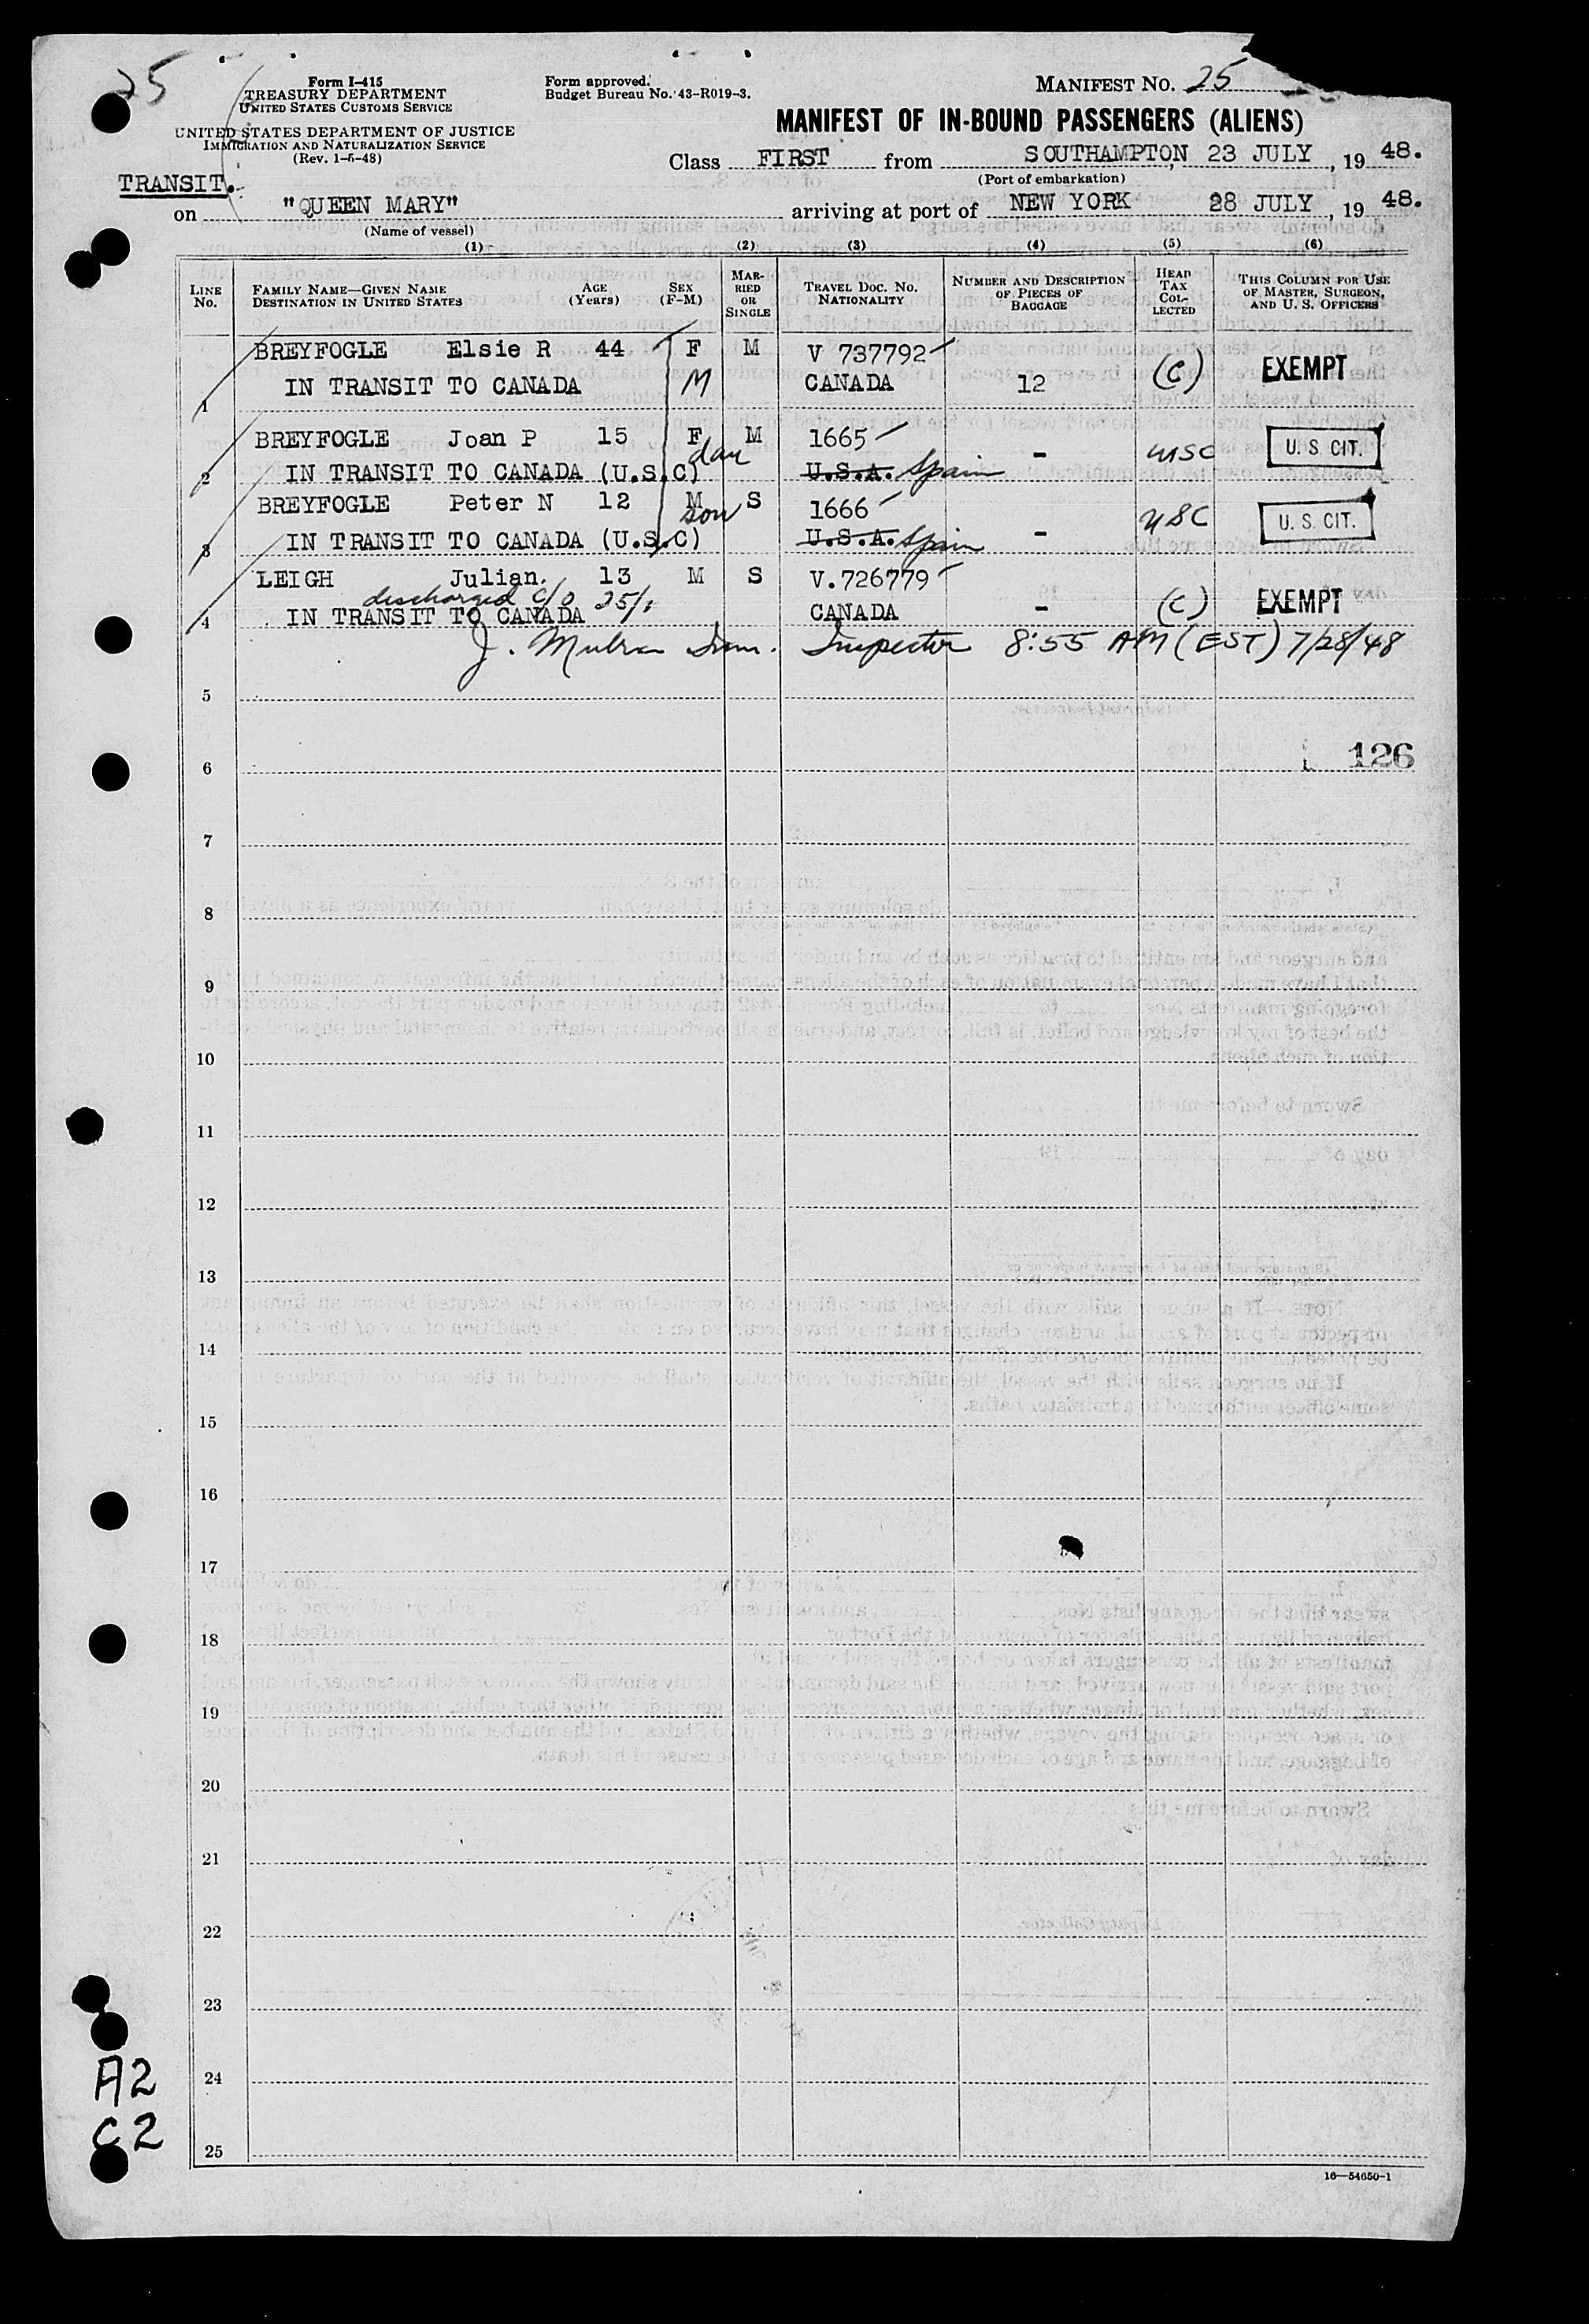 25
Form I-415
TREASURY DEPARTMENT
UNITED STATES CUSTOMS SERVICE
UNITED STATES DEPARTMENT OF JUSTICE
IMMIGRATION AND NATURALIZATION SERVICE
(Rev. 1-5-48)
Form approved.
Budget Bureau No. 43-R019-3.
MANIFEST NO. 25
MANIFEST OF IN-BOUND PASSENGERS (ALIENS)
Class FIRST from SOUTHAMPTON, 23 JULY, 19 48.
(Port of embarkation)
TRANSIT.
on "QUEEN MARY" arriving at port of NEW YORK 28 JULY, 19 48.
(Name of vessel)
(1) (2) (3) (4) (5) (6)
LINE No. FAMILY NAME—GIVEN NAME DESTINATION IN UNITED STATES AGE (Years) SEX (F-M) MARRIED OR SINGLE TRAVEL DOC. NO. NATIONALITY NUMBER AND DESCRIPTION OF PIECES OF BAGGAGE HEAD TAX COLLECTED THIS COLUMN FOR USE OF MASTER, SURGEON, AND U. S. OFFICERS
BREYFOGLE Elsie R 44 F M V 737792
1 IN TRANSIT TO CANADA M CANADA 12 (C) EXEMPT
BREYFOGLE Joan P 15 F M 1665
2 IN TRANSIT TO CANADA (U.S.C) dau U.S.A. Spain - USC U. S. CIT.
BREYFOGLE Peter N 12 M S 1666
3 IN TRANSIT TO CANADA (U.S.C) son U.S.A. Spain - USC U. S. CIT.
LEIGH Julian. 13 M S V.726779
discharged c/o 25/1
4 IN TRANSIT TO CANADA CANADA - (C) EXEMPT
J. Inspector 8:55 AM (EST) 7/28/48
5
126
6
7
8
9
10
11
12
13
14
15
16
17
18
19
20
21
22
23
24
25
A2
C2
16—54650-1